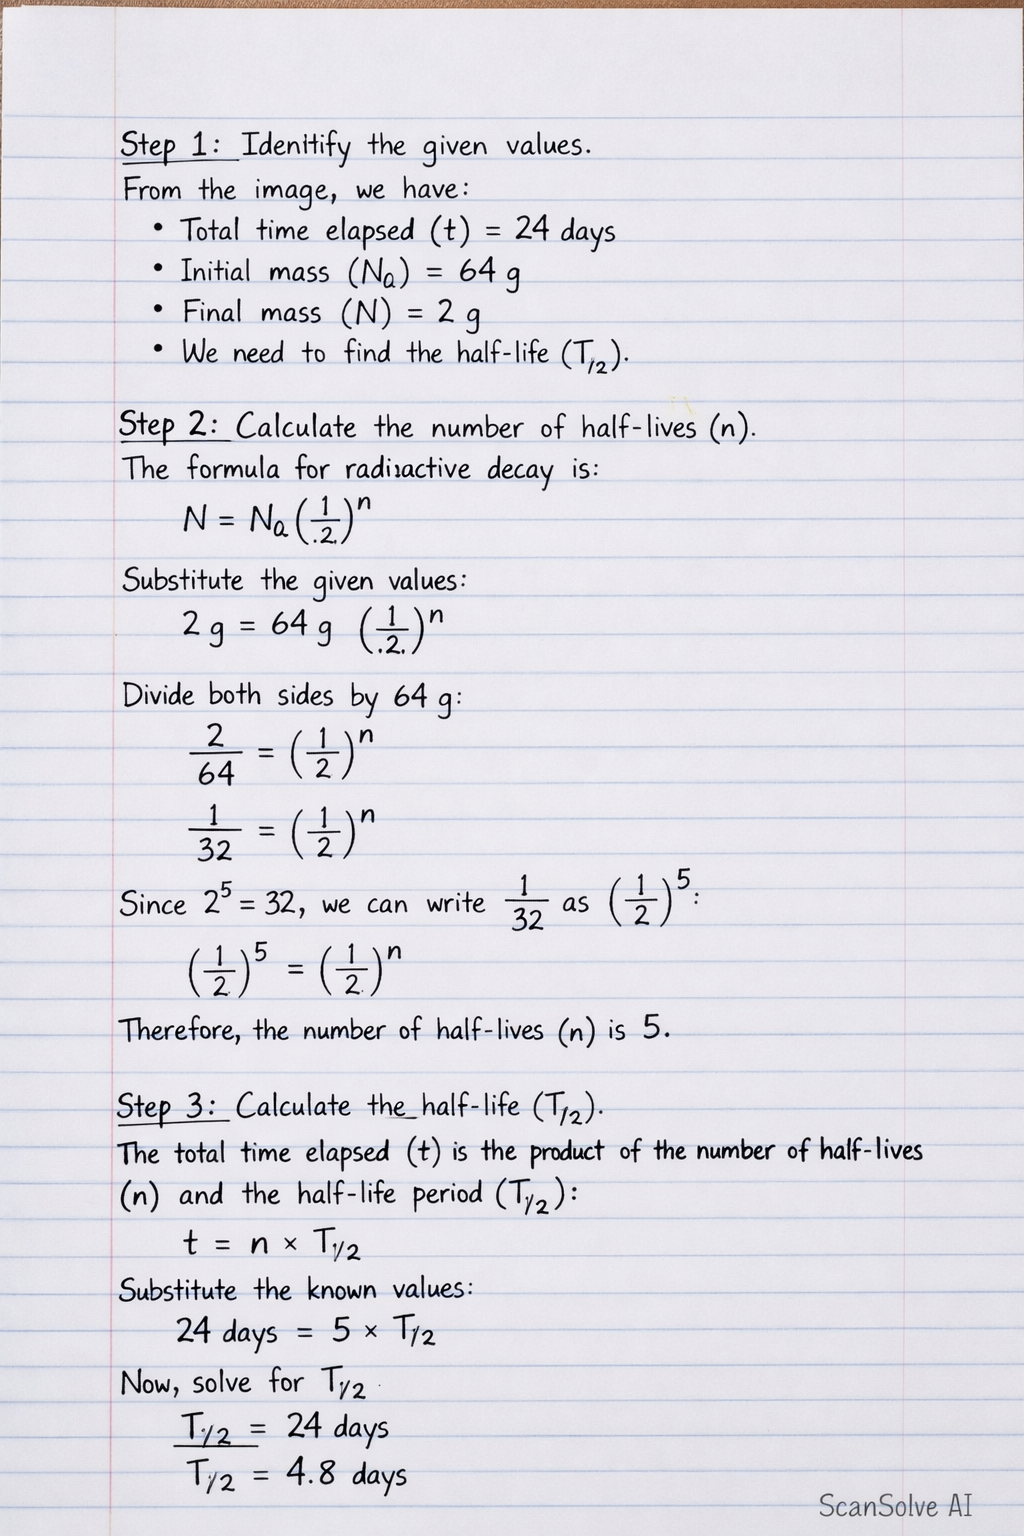 Step 1: Idenitify the given values.
From the image, we have:
• Total time elapsed (t) = 24 days
• Initial mass (Nₐ) = 64 g
• Final mass (N) = 2 g
• We need to find the half-life (T/2).
Step 2: Calculate the number of half-lives (n).
The formula for radiıactive decay is:
N = Nₐ (1/.2.)ⁿ
Substitute the given values:
2 g = 64 g (1/.2.)ⁿ
Divide both sides by 64 g:
2/64 = (1/2)ⁿ
1/32 = (1/2)ⁿ
Since 2⁵ = 32, we can write 1/32 as (1/2)⁵:
(1/2)⁵ = (1/2)ⁿ
Therefore, the number of half-lives (n) is 5.
Step 3: Calculate the_half-life (T1/2).
The total time elapsed (t) is the product of the number of half-lives
(n) and the half-life period (T1/2):
t = n × T1/2
Substitute the known values:
24 days = 5 × T1/2
Now, solve for T1/2
T1/2 = 24 days
T1/2 = 4.8 days
ScanSolve AI